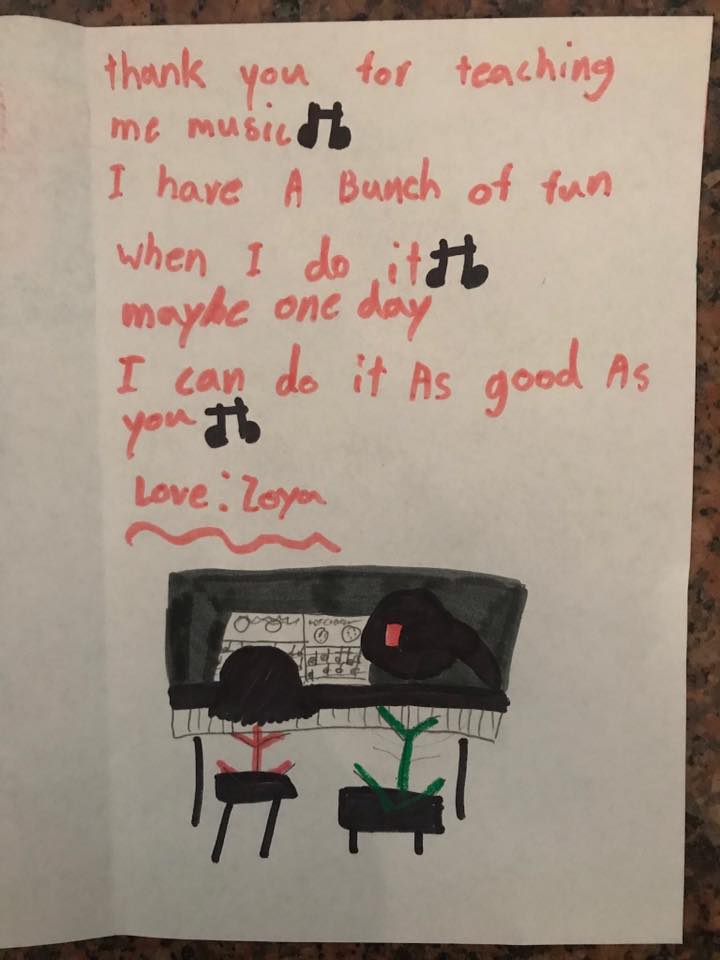 thank you for teaching
me music
I have A Bunch of fun
when I do it
maybe one day
I can do it As good As
you
Love: Zoya